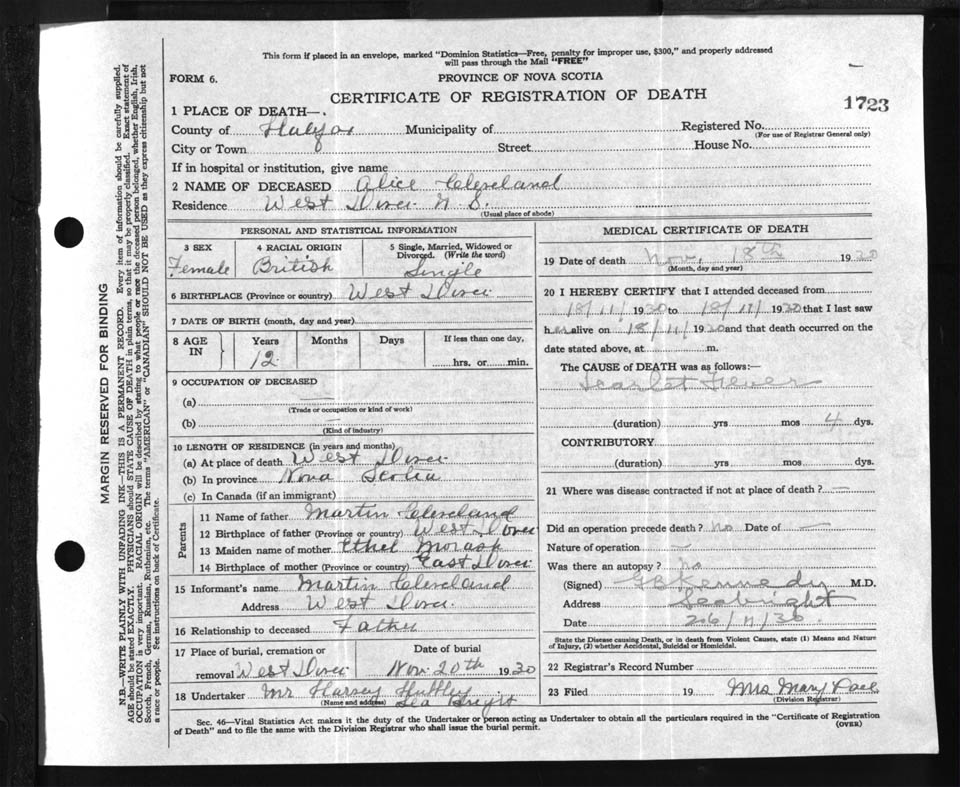 This form if placed in an envelope, marked "Dominion Statistics—Free, penalty for improper use, $300," and properly addressed
will pass through the Mail "FREE"
FORM 6.
PROVINCE OF NOVA SCOTIA
CERTIFICATE OF REGISTRATION OF DEATH
1723
1 PLACE OF DEATH—
County of Halifax Municipality of Registered No.
(For use of Registrar General only)
City or Town Street House No.
If in hospital or institution, give name
2 NAME OF DECEASED Alice Cleveland
Residence West Dover N. S.
(Usual place of abode)
PERSONAL AND STATISTICAL INFORMATION
3 SEX Female
4 RACIAL ORIGIN British
5 Single, Married, Widowed or Divorced. (Write the word) Single
6 BIRTHPLACE (Province or country) West Dover
7 DATE OF BIRTH (month, day and year)
8 AGE IN Years Months Days If less than one day,
12 hrs. or min.
9 OCCUPATION OF DECEASED
(a) —
(Trade or occupation or kind of work)
(b) —
(Kind of industry)
10 LENGTH OF RESIDENCE (in years and months)
(a) At place of death West Dover
(b) In province Nova Scotia
(c) In Canada (if an immigrant)
Parents
11 Name of father Martin Cleveland
12 Birthplace of father (Province or country) West Dover
13 Maiden name of mother Ethel Morash
14 Birthplace of mother (Province or country) East Dover
15 Informant's name Martin Cleveland
Address West Dover
16 Relationship to deceased Father
17 Place of burial, cremation or removal West Dover
Date of burial Nov 20th 1930
18 Undertaker Mr Harvey Hubley
(Name and address) Sea Bright
MEDICAL CERTIFICATE OF DEATH
19 Date of death Nov. 18th 1930
(Month, day and year)
20 I HEREBY CERTIFY that I attended deceased from
18/11/1930 to 18/11/1930 that I last saw
her alive on 18/11/1930 and that death occurred on the
date stated above, at m.
The CAUSE of DEATH was as follows:—
Scarlet Fever
(duration) yrs mos 4 dys.
CONTRIBUTORY
(duration) yrs. mos. dys.
21 Where was disease contracted if not at place of death? —
Did an operation precede death? No Date of —
Nature of operation —
Was there an autopsy? No
(Signed) G B Kennedy M.D.
Address Seabright
Date 26/11/30
State the Disease causing Death, or in death from Violent Causes, state (1) Means and Nature
of Injury, (2) whether Accidental, Suicidal or Homicidal.
22 Registrar's Record Number
23 Filed 19 Mrs Mary
(Division Registrar)
Sec. 46—Vital Statistics Act makes it the duty of the Undertaker or person acting as Undertaker to obtain all the particulars required in the "Certificate of Registration
of Death" and to file the same with the Division Registrar who shall issue the burial permit.
(OVER)
MARGIN RESERVED FOR BINDING
N.B.—WRITE PLAINLY WITH UNFADING INK—THIS IS A PERMANENT RECORD. Every item of information should be carefully supplied.
AGE should be stated EXACTLY. PHYSICIANS should STATE CAUSE OF DEATH in plain terms, so that it may be properly classified. Exact statement of
OCCUPATION is very important. RACIAL ORIGIN will be described by stating to what people or race the deceased person belonged, whether English, Irish,
Scotch, French, German, Russian, Ruthenian, etc. The terms "AMERICAN" or "CANADIAN" SHOULD NOT BE USED as they express citizenship but not
a race or people. See instructions on back of Certificate.